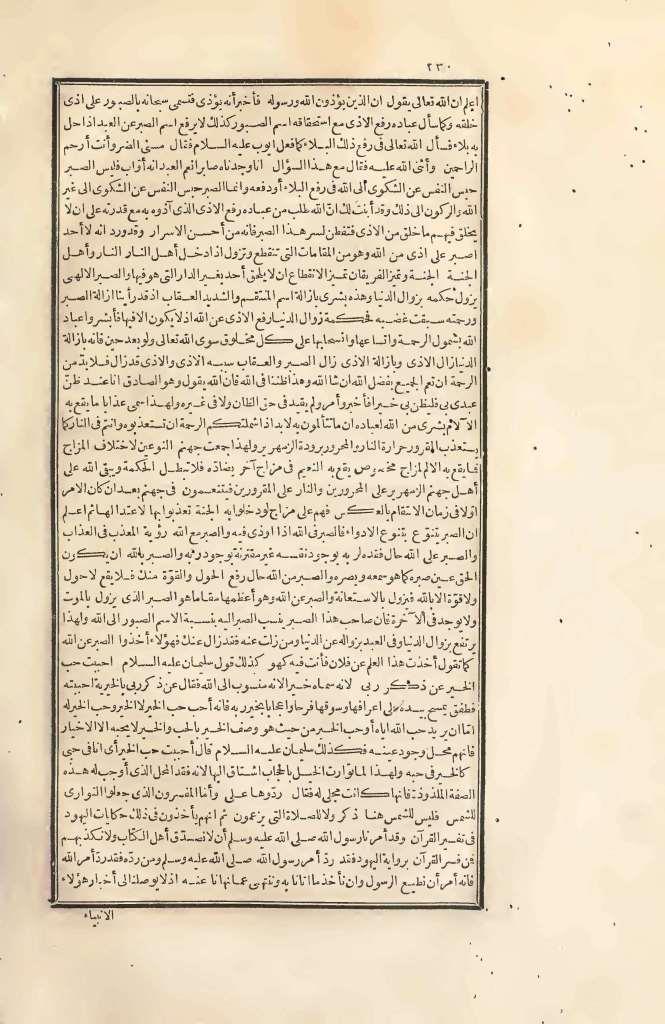 ٢٣٠
اعلم ان الله تعالى يقول ان الذين يؤذون الله ورسوله فأخبر أنه يؤذى فتسمى سبحانه بالصبور على اذى
خلقه وكما سأل عباده رفع الاذى مع استحقاقه اسم الصبور كذلك لا يرفع اسم الصبر عن العبد اذا حل
به بلاء فسأل الله تعالى فى رفع ذلك البلاء كما فعل ايوب عليه السلام فقال مسنى الضر وأنت أرحم
الراحمين وأثنى الله عليه فقال مع هذا السؤال انا وجدناه صابرا نعم العبد انه أوّاب فليس الصبر
حبس النفس عن الشكوى الى الله فى رفع البلاء أو دفعه وانما الصبر حبس النفس عن الشكوى الى غير
الله والركون الى ذلك وقد أبنت لك انّ الله طلب من عباده رفع الاذى الذى آذوه به مع قدرته على ان لا
يخلق فيهم ما خلق من الاذى فتفطن لسر هذا الصبر فانه من أحسن الاسرار وقد ورد انه لا أحد
أصبر على اذى من الله وهو من المقامات التى تنقطع وتزول اذا دخل أهل النار النار وأهل
الجنة الجنة وتميز الفريقان تميز الانقطاع ان لا يلحق أحد بغير الدار التى هو فيها والصبر الالهى
يزول حكمه بزوال الدنيا وهذه بشرى بازالة اسم المنتقم والشديد العقاب اذ قد رأينا ازالة الصبر
ورحمته سبقت غضبه فحكمة زوال الدنيا رفع الاذى عن الله اذ لا يكون الا فيها فأبشروا عباد
الله بشمول الرحمة واتساعها وانسحابها على كل مخلوق سوى الله تعالى ولو بعد حين فانه بازالة
الدنيا زال الاذى وبازالة الاذى زال الصبر والعقاب سببه الاذى والاذى قد زال فلا بدّ من
الرحمة ان تعم الجميع بفضل الله ان شاء الله وهذا ظننا فى الله فانّ الله يقول وهو الصادق انا عند ظنّ
عبدى بى فليظن بى خيرا فأخبر وأمر ولم يقيد فى حق الظان ولا فى غيره ولهذا سمى عذابا ما يقع به
الآلام بشرى من الله لعباده ان ما تتألمون به لا بد اذا شملتكم الرحمة ان تستعذبوه وانتم فى النار كما
يستعذب المقرور حرارة النار والمحرور برودة الزمهرير ولهذا جمعت جهنم النوعين لاختلاف المزاج
فما يقع به الالم لمزاج مخصوص يقع به النعيم فى مزاج آخر يضادّه فلا تبطل الحكمة ويبقى الله على
أهل جهنم الزمهرير على المحرورين والنار على المقرورين فيتنعمون فى جهنم بعد ان كان الامر
اوّلا فى زمان الانتقام بالعكس فهم على مزاج لو دخلوا به الجنة تعذبوا بها لاعتدالها ثم اعلم
ان الصبر يتنوّع بتنوع الادواء فالصبر فى الله اذا اوذى فيه والصبر مع الله رؤية المعذب فى العذاب
والصبر على الله حال فقده لربه بوجود نفسه غير مقترنة بوجود ربه والصبر بالله ان يكون
الحق عين صبره كما هو سمعه وبصره والصبر من الله حال رفع الحول والقوّة منك فلا يقع لا حول
ولا قوّة الا بالله فيزول بالاستعانة والصبر عن الله وهو أعظمها مقاما هو الصبر الذى يزول بالموت
ولا يوجد فى الآخرة فان صاحب هذا الصبر ينسب الصبر اليه بنسبة الاسم الصبور الى الله ولهذا
يرتفع بزوال الدنيا وفى العبد بزواله عن الدنيا ومن زلت عنه فقد زال عنك فهؤلاء أخذوا الصبر عن الله
كما تقول أخذت هذا العلم عن فلان فأنت فيه كهو كذلك قول سليمان عليه السلام احببت حب
الخير عن ذكر ربى لانه سماه خيرا لانه منسوب الى الله فقال عن ذكر ربى بالخيرية احببته
فطفق يمسح بيده على اعرافها وسوقها فرحا واعجابا بخير ربه فانه أحب حب الخير لا الخير وحب الخير له
امّا ان يريد حب الله اياه أو حب الخير من حيث هو وصف الخير بالحب والخير لا يحبه الا الاخيار
فانهم محل وجود عينه فكذلك سليمان عليه السلام قال أحببت حب الخير أى انا فى حبى
كالخير فى حبه ولهذا لما توارت الخيل بالحجاب اشتاق اليها لانه فقد المحل الذى أوجب له هذه
الصفة الملذوذة فانها كانت مجلى له فقال ردّوها علىّ وأما المفسرون الذى جعلوا التوارى
للشمس فليس للشمس هنا ذكر ولا للصلاة التى يزعمون ثم انهم يأخذون فى ذلك حكايات اليهود
فى تفسير القرآن وقد أمرنا رسول الله صلى الله عليه وسلم أن لا نصدّق أهل الكتاب ولا نكذبهم
فمن فسر القرآن برواية اليهود فقد ردّ أمر رسول الله صلى الله عليه وسلم ومن ردّه فقد ردّ أمر الله
فانه أمر أن نطيع الرسول وان نأخذ ما اتانا به وننتهى عما نهانا عنه اذ لا يوصلنا الى أخبار هؤلاء
الانبياء